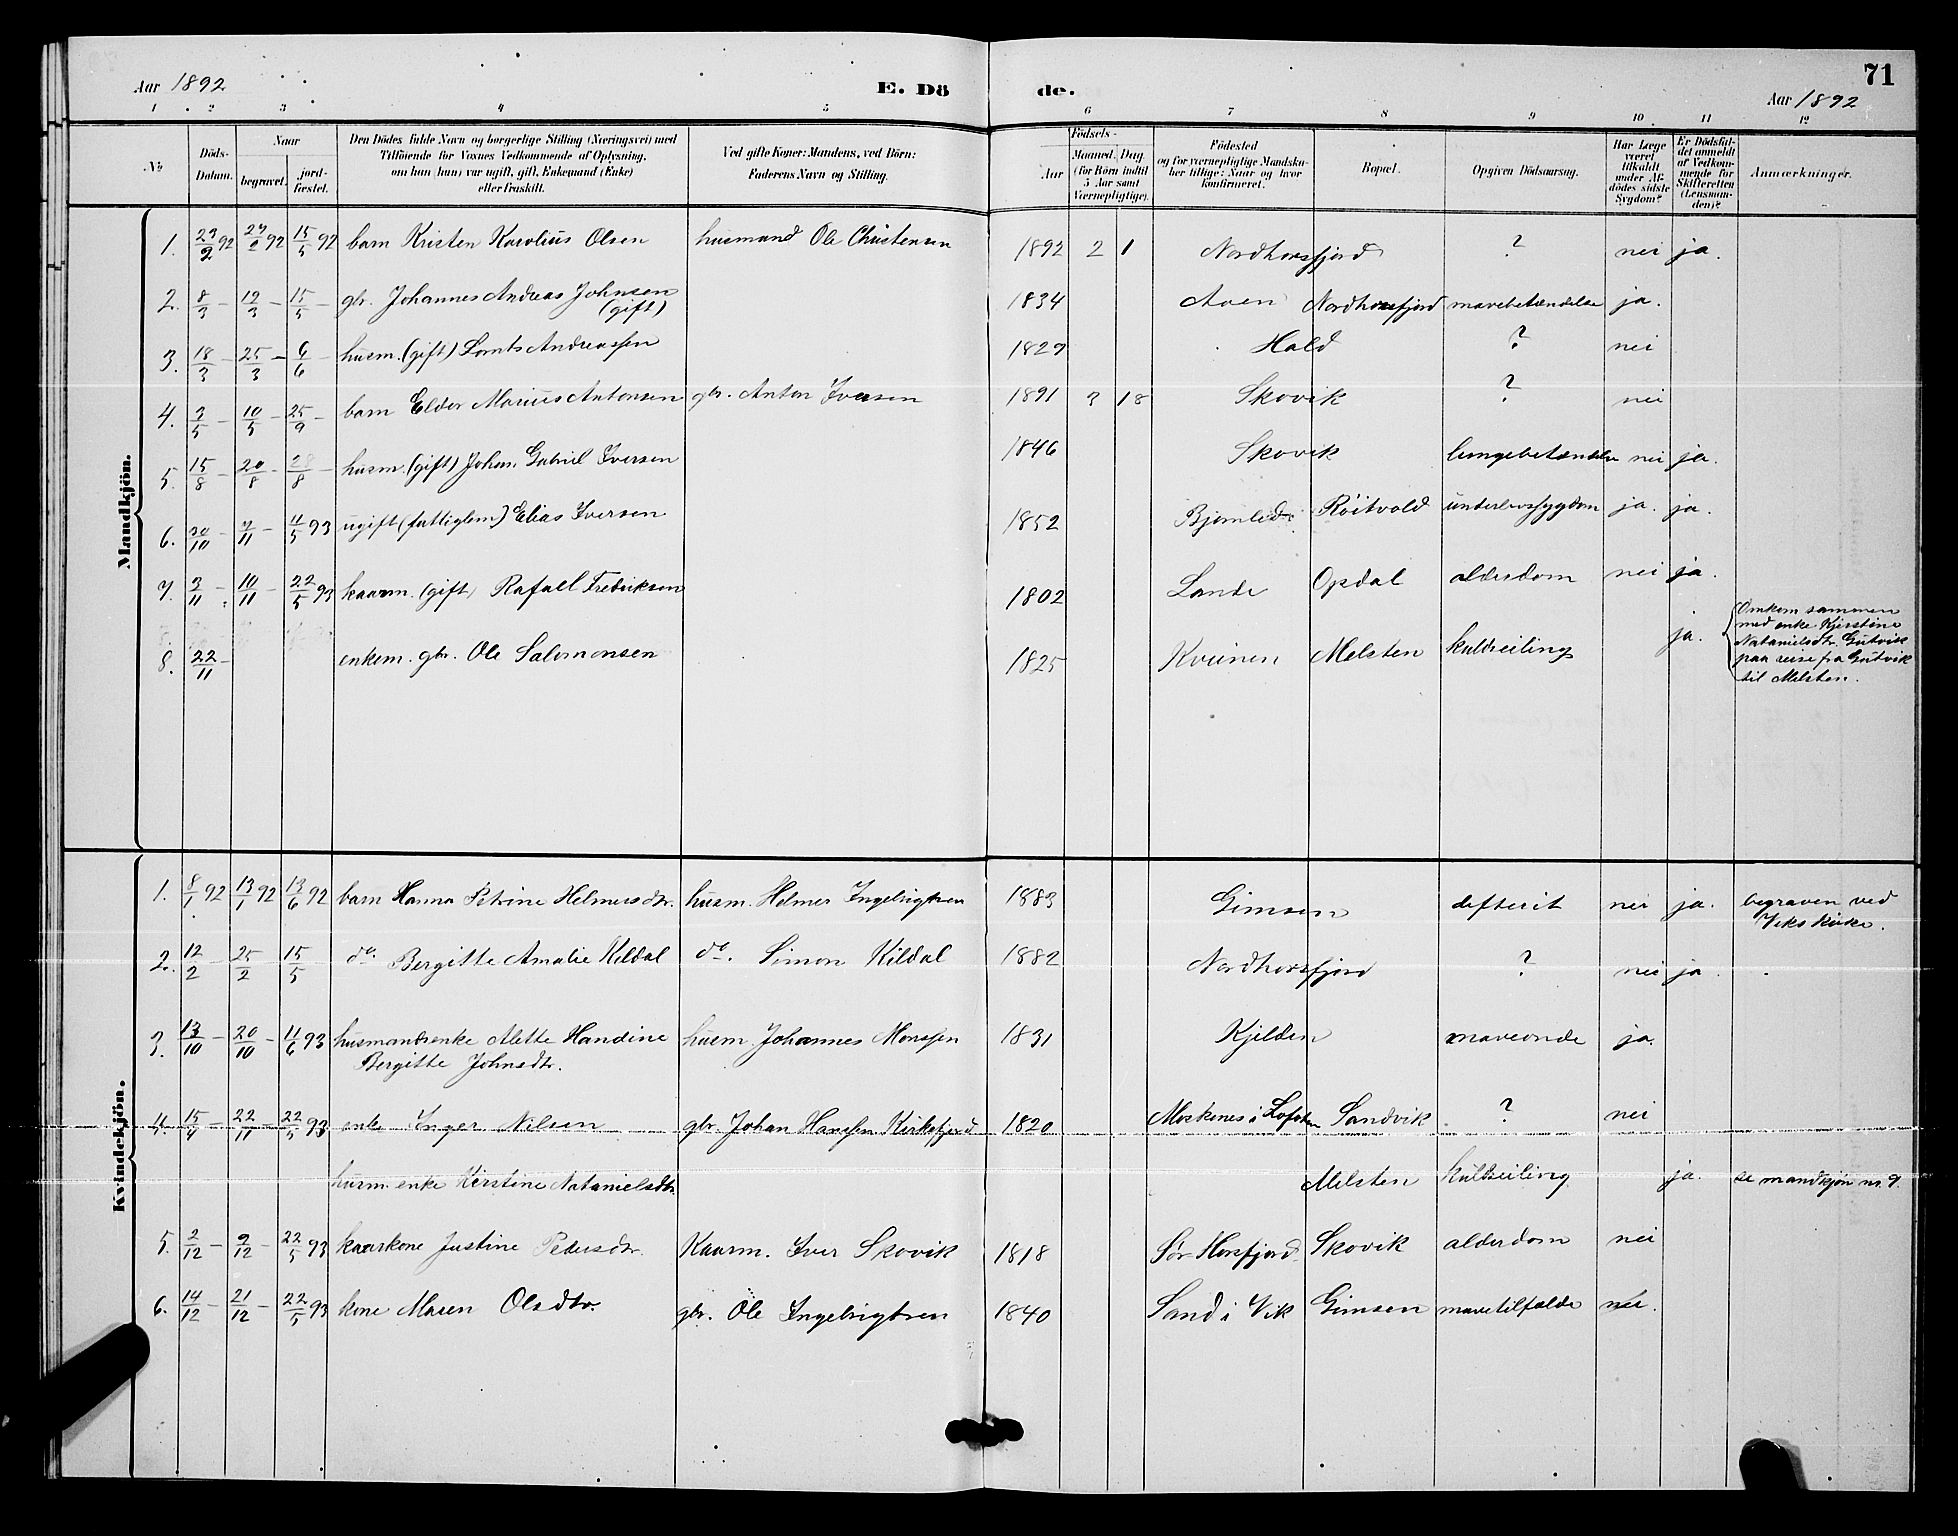 71
Aar 1892 E. Dö de. Aar 1892
1 2 3 4 5 6 7 8 9 10. 11 12
No. Döds-Datum. Naar begravet. jordfæstet. Den Dödes fulde Navn og borgerlige Stilling (Næringsvei) med Tilföiende for Voxnes Vedkommende af Oplysning, om han (hun) var ugift, gift, Enkemand (Enke) eller fraskilt. Ved gifte Koner: Mandens, ved Börn: Faderens Navn og Stilling. Födsels- Aar Maaned. Dag. (for Börn indtil 5 Aar samt Værnepligtige). Födested og for værnepligtige Mandskaber tillige: Naar og hvor konfirmeret. Bopæl. Opgiven Dödsaarsag. Har Læge været tilkaldt under Afdödes sidste Sygdom? Er Dödsfaldet anmeldt af Vedkommende for Skifteretten (Lensmanden)? Anmærkninger.
Mandkjön.
1. 23/2 92 27/2 92 15/5 92 barn Kristen Karolius Olsen husmand Ole Christensen 1892 2 1 Nordhorsfjord ? nei ja.
2. 8/3 – 19/3 – 15/5 – gbr. Johannes Andreas Johnsen (gift) 1834 Aven Nordhorsfjord mavebetændelse ja.
3. 18/3 – 25/3 – 6/6 husm. (gift) Lornts Andreassen 1829 Hald ? nei
4. 3/5 – 10/5 – 25/9 – barn Eldor Marius Antonsen gbr. Anton Iversen 1891 3 18 Skovik ? nei
5. 15/8 – 20/8 – 28/8 husm. (gift) Johan Gabriel Iversen 1846 Skovik lungebetændelse nei ja.
6. 30/10 – 7/11 – 11/5 93 ugift (fattiglem) Elias Iversen 1852 Røitvold underlivssygdom ja. ja.
7. 3/11 – 10/11 – 22/5 93 kaarm. (gift) Rafael Fredriksen 1802 Lande Opdal alderdom nei ja.
8. 22/11 – enkem. gbr. Ole Salomonsen 1825 Kvinen Melsten kuldseiling ja. Omkom sammen
med enke Kjerstine
Natanielsdtr. Gutvik
paa reise fra Gutvik
til Melsten.
Kvindekjön.
1. 8/1 92 13/1 92 13/6 92 barn Hanna Petrine Helmersdtr. husm. Helmer Ingebrigtsen 1883 Gimsen difterit nei ja. begraven ved
Viks kirke.
2. 12/2 – 25/2 – 15/5 do. Bergitte Amalie Kildal do. Simon Kildal 1882 Nordhorsfjord ? nei ja
3. 13/10 – 20/10 – 11/6 93 husmandsenke Alette Handine husm. Johannes Monssen 1831 Kjelden maveonde ja.
Bergitte Johnsdtr.
4. 15/4 – 22/11 – 22/5 93 enke Inger Nilsen gbr. Johan Hanssen Kirkefjord 1820 Moskenes i Lofoten Sandvik ? nei
husm. enke Kirstine Natanielsdtr. Melsten kuldseiling ja. se mandkjøn nr. 9.
5. 2/12 – 9/12 – 22/5 93 kaarkone Justine Pedersdtr. Kaarm. Iver Skovik 1818 Sør Horsfjord Skovik alderdom nei
6. 14/12 – 21/12 – 22/5 93 kone Maren Olsdtr. gbr. Ole Ingebrigtsen 1840 Sand i Vik Gimsen mavetilfælde nei.